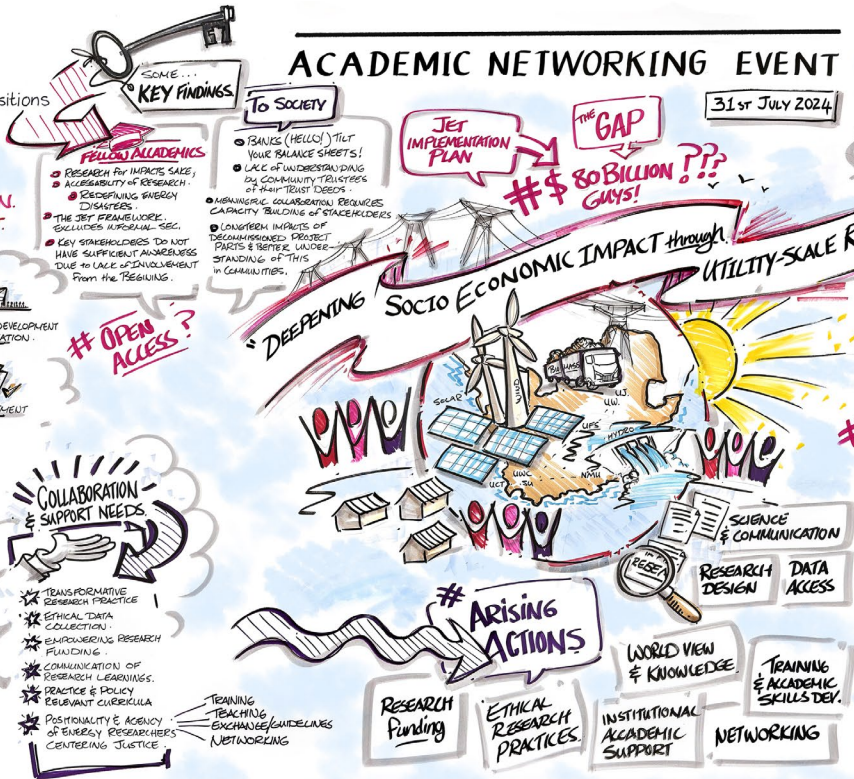 ACADEMIC NETWORKING EVENT
31ST JULY 2024
SOME...
KEY FINDINGS
sitions
FELLOW ACCADEMICS
RESEARCH FOR IMPACTS SAKE,
ACCESSABILITY OF RESEARCH.
REDEFINING ENERGY
DISASTERS.
THE JET FRAMEWORK.
EXCLUDES INFORMAL SEC.
KEY STAKEHOLDERS DO NOT
HAVE SUFFICIENT AWARENESS
DUE TO LACK OF INVOLVEMENT
FROM THE BEGINING.
TO SOCIETY
BANKS (HELLO!) TILT
YOUR BALANCE SHEETS!
LACK OF UNDERSTANDING
by COMMUNITY TRUSTEES
of their TRUST DEEDS.
MEANINGFUL COLLABORATION REQUIRES
CAPACITY BUILDING OF STAKEHOLDERS
LONGTERM IMPACTS OF
DECOMMISSIONED PROJECT
PARTS & BETTER UNDER-
STANDING OF THIS
in COMMUNITIES.
JET
IMPLEMENTATION
PLAN
THE GAP
#$ 80 BILLION ???
GUYS!
# OPEN
ACCESS?
"DEEPENING SOCIO ECONOMIC IMPACT through UTILITY-SCALE R
SOLAR
WIND
BIOMASS
U.J.
U.W.
UFS
HYDRO
UWC
UCT
SU
NMU
COLLABORATION
& SUPPORT NEEDS.
TRANSFORMATIVE
RESEARCH PRACTICE
ETHICAL DATA
COLLECTION.
EMPOWERING RESEARCH
FUNDING.
COMMUNICATION OF
RESEARCH LEARNINGS.
PRACTICE & POLICY
RELEVANT CURRICULA
POSITIONALITY & AGENCY
of ENERGY RESEARCHERS
CENTERING JUSTICE
TRAINING
TEACHING
EXCHANGE/GUIDELINES
NETWORKING
SCIENCE
& COMMUNICATION
RESEARCH
DESIGN
DATA
ACCESS
# ARISING
ACTIONS
RESEARCH
Funding
ETHICAL
RESEARCH
PRACTICES.
WORLD VIEW
& KNOWLEDGE.
INSTITUTIONAL
ACCADEMIC
SUPPORT
TRAINING
& ACCADEMIC
SKILLS DEV.
NETWORKING